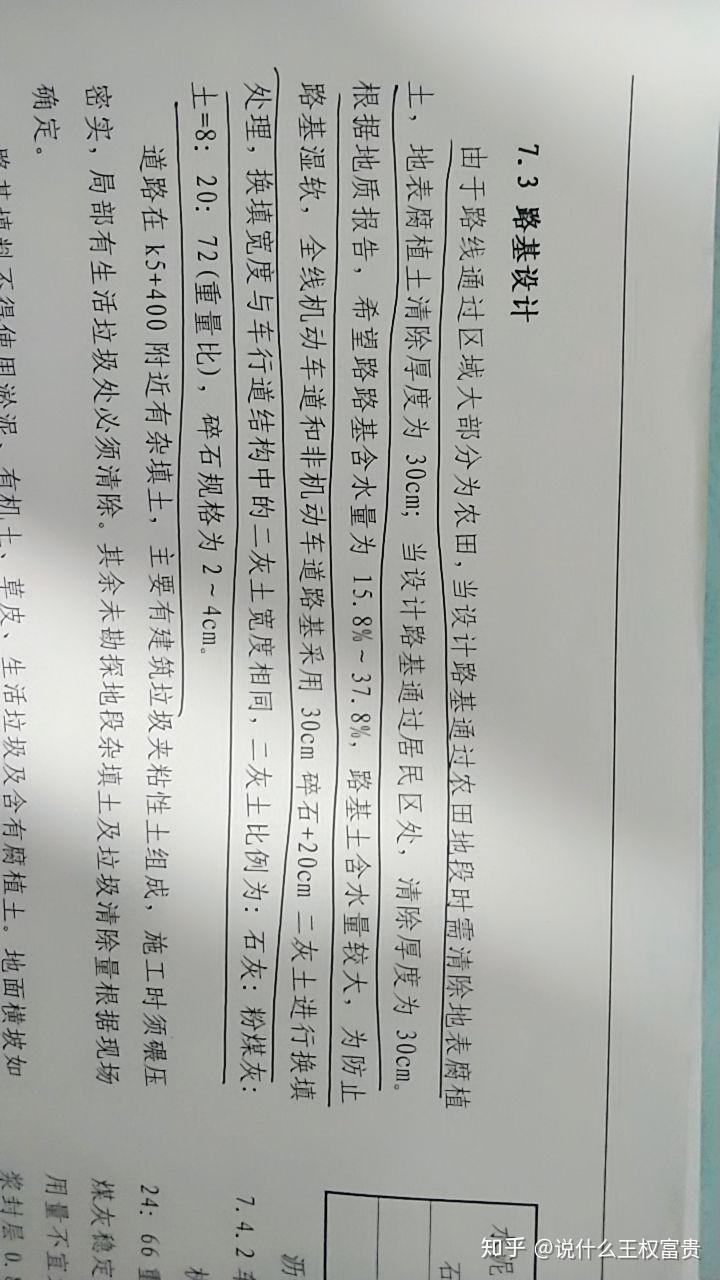 7.3 路基设计
由于路线通过区域大部分为农田,当设计路基通过农田地段时需清除地表腐植
土,地表腐植土清除厚度为 30cm; 当设计路基通过居民区处,清除厚度为 30cm。
根据地质报告,希望路路基含水量为 15.8%~37.8%,路基土含水量较大,为防止
路基湿软,全线机动车道和非机动车道路基采用 30cm 碎石+20cm 二灰土进行换填
处理,换填宽度与车行道结构中的二灰土宽度相同,二灰土比例为:石灰:粉煤灰:
土=8: 20: 72(重量比),碎石规格为 2~4cm。
道路在 k5+400 附近有杂填土,主要有建筑垃圾夹粘性土组成,施工时须碾压
密实,局部有生活垃圾处必须清除。其余未勘探地段杂填土及垃圾清除量根据现场
确定。
路基填料不得使用淤泥、有机土、草皮、生活垃圾及含有腐植土。地面横坡如
水泥
石
沥
7.4.2 车
24: 66 重
煤灰稳定
用量不宜
浆封层 0.
知乎 @说什么王权富贵